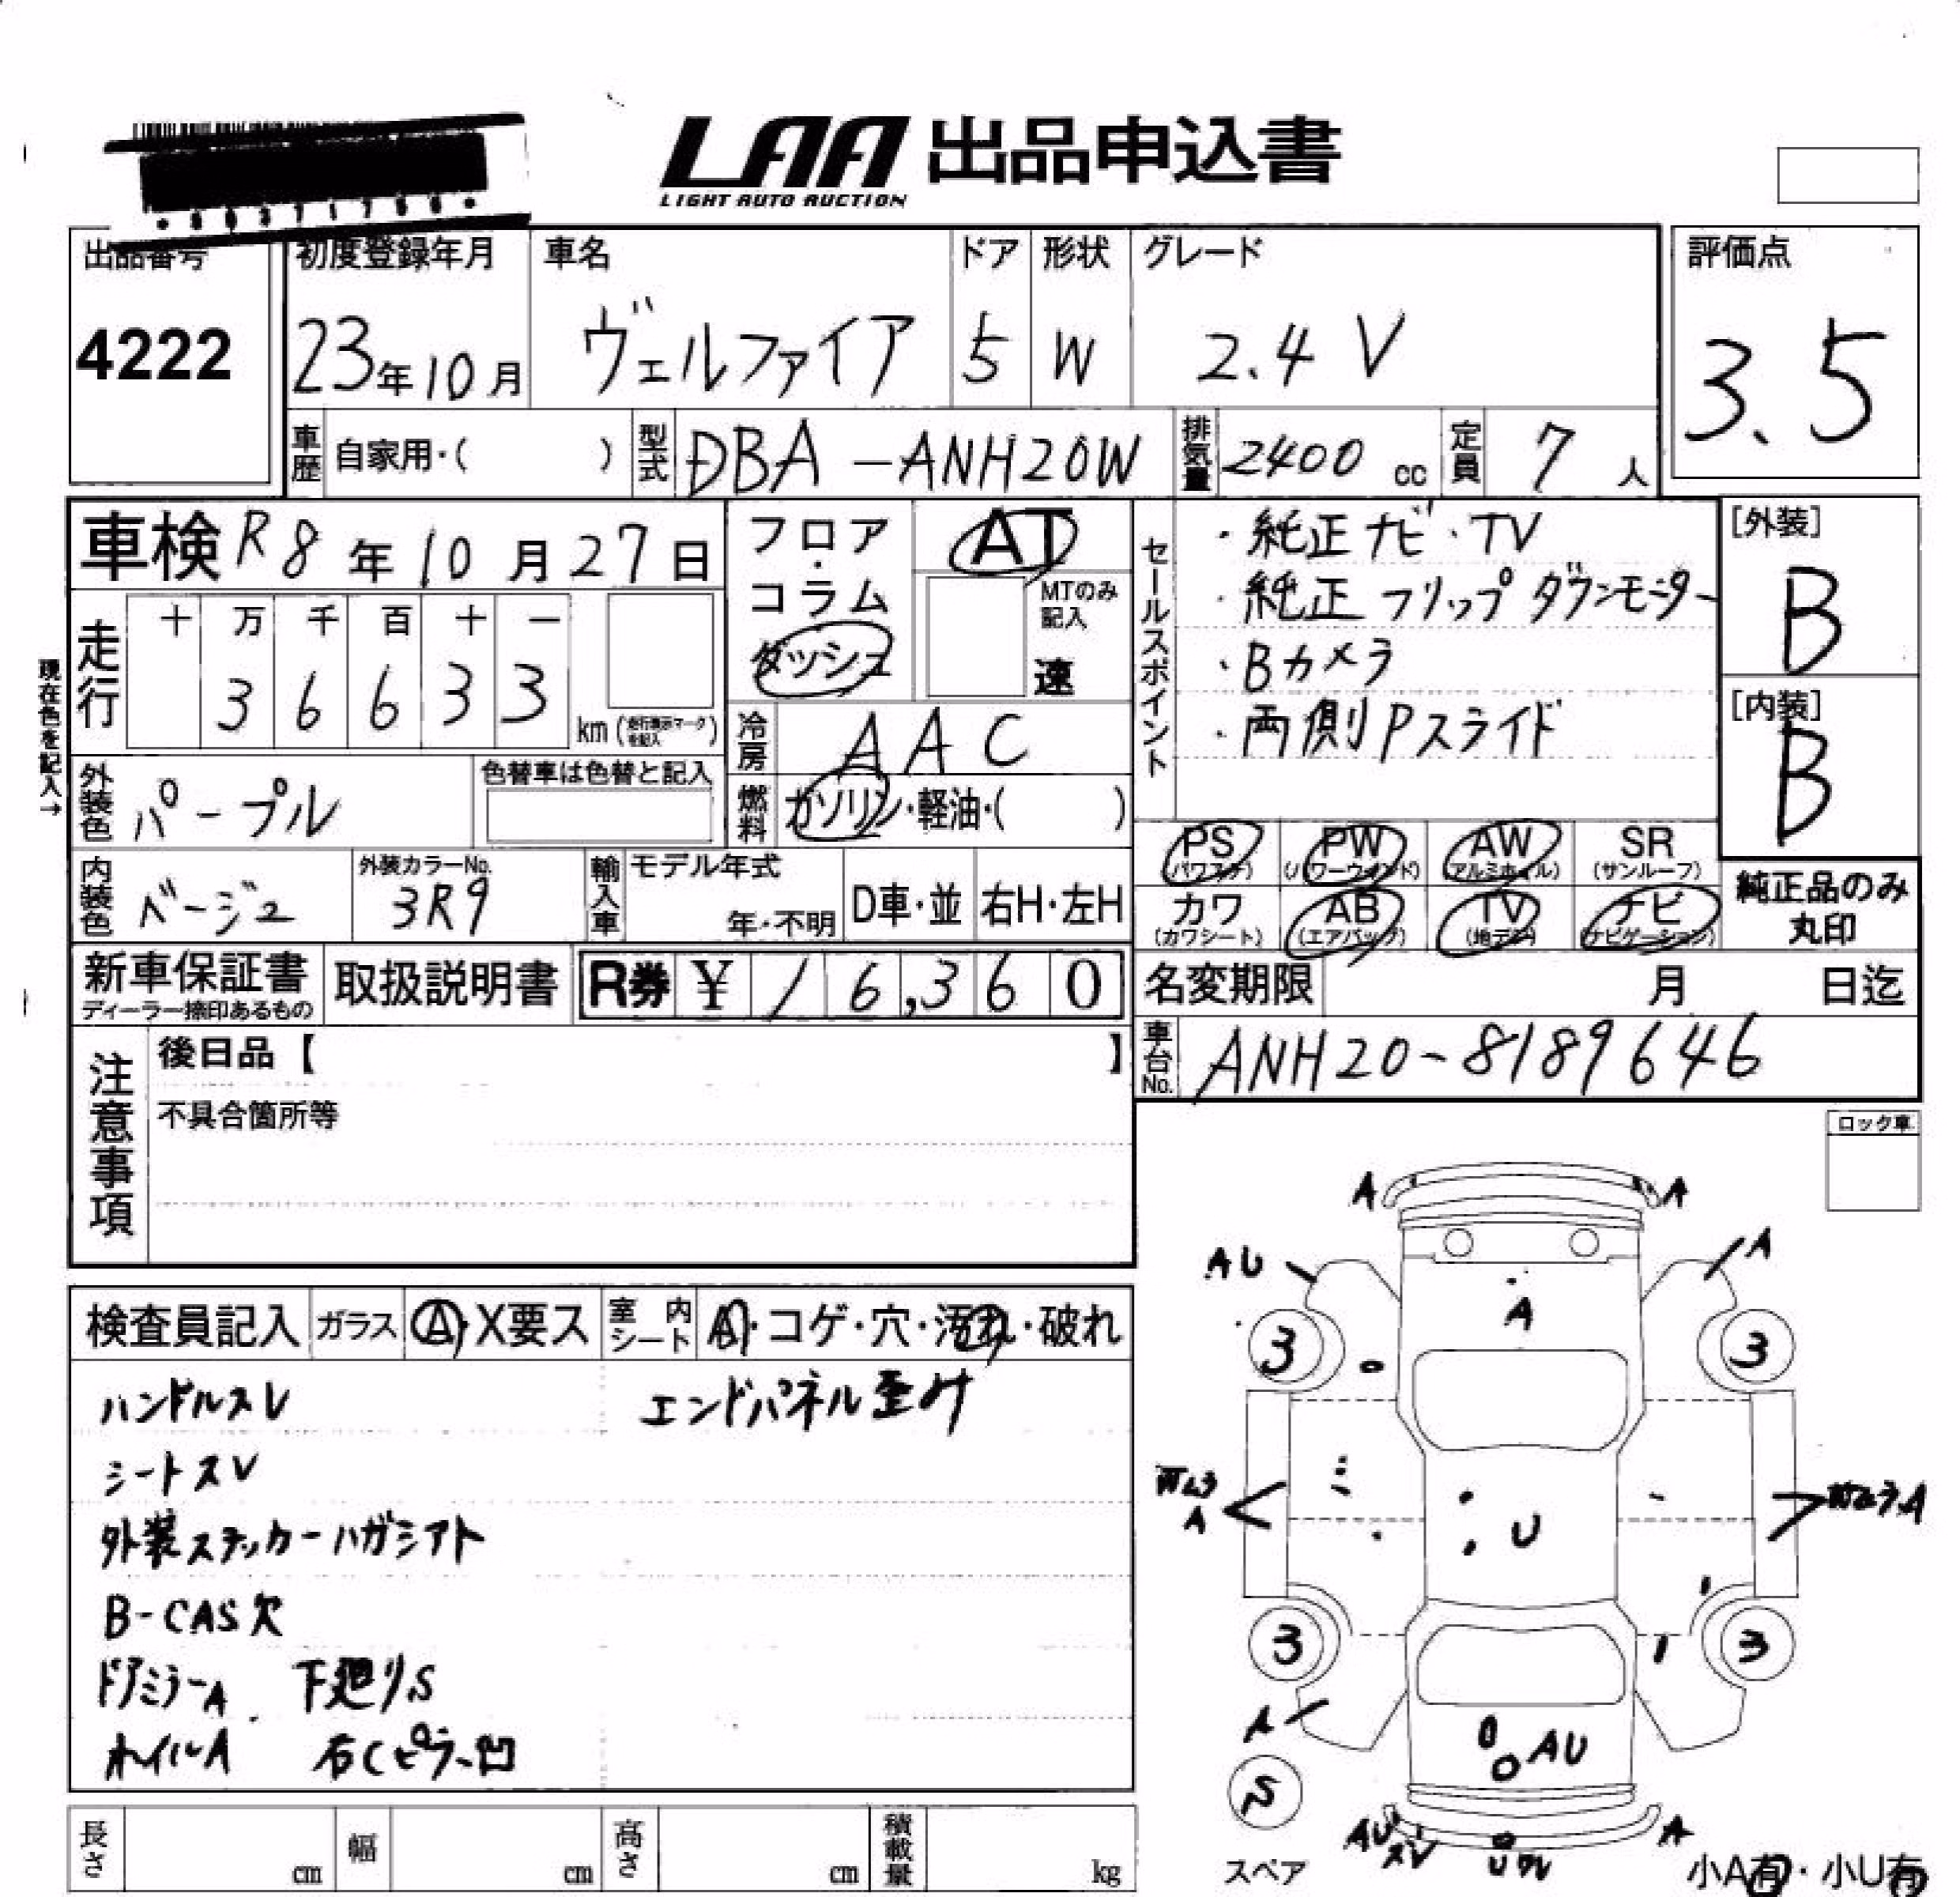 LAA 出品申込書
LIGHT AUTO AUCTION
出品番号 初度登録年月 車名 ドア 形状 グレード 評価点
4222 23年10月 ヴェルファイア 5 W 2.4 V 3.5
車歴 自家用・( ) 型式 DBA-ANH20W 排気量 2400 cc 定員 7 人
車検 R8年10月27日
フロア・コラム ダッシュ
AT
MTのみ記入
速
セールスポイント
・純正ナビ・TV
・純正フリップダウンモニター
・Bカメラ
・両側Pスライド
[外装]
B
[内装]
B
現在色を記入→
走行 十 万 千 百 十 一
3 6 6 3 3 km (走行表示マークを記入)
冷房 AAC
外装色 パープル 色替車は色替と記入
燃料 ガソリン・軽油・( )
PS (パワステ) PW (パワーウインド) AW (アルミホイル) SR (サンルーフ)
カワ (カワシート) AB (エアバッグ) TV (地デジ) ナビ (ナビゲーション)
純正品のみ丸印
内装色 ベージュ 外装カラーNo. 3R9 輸入車 モデル年式 年・不明 D車・並 右H・左H
新車保証書 ディーラー捺印あるもの 取扱説明書 R券 ¥ 16,360
名変期限 月 日迄
車台No. ANH20-8189646
注意事項
後日品【 】
不具合箇所等
ロック車
検査員記入 ガラス A・X要ス 室内シート A・コゲ・穴・汚れ・破れ
ハンドルスレ エンドパネル歪み
シートスレ
外装ステッカーハガシアト
B-CAS欠
ドアミラーA 下廻りS
ホイルA 右Cピラー凹
A A
AU A
A
3 3
A
U
A
3 3
A
AU
AU スレ
U ワレ
A
スペア
小A有・小U有
長さ cm 幅 cm 高さ cm 積載量 kg